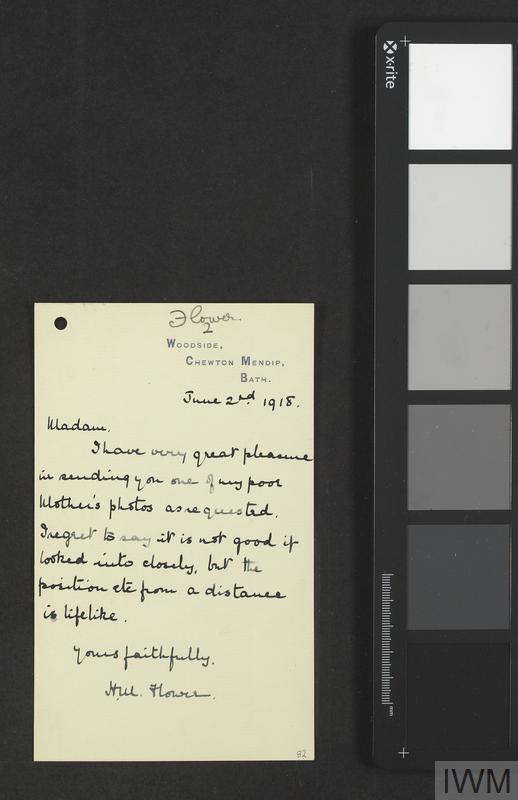 x·rite
Flower
2
WOODSIDE,
CHEWTON MENDIP,
BATH.
June 2nd 1918.
Madam.
I have very great pleasure
in sending you one of my poor
Mother's photos as requested.
I regret to say it is not good if
looked into closely, but the
position etc from a distance
is lifelike.
Yours faithfully.
H.M. Flower.
82
mm
IWM